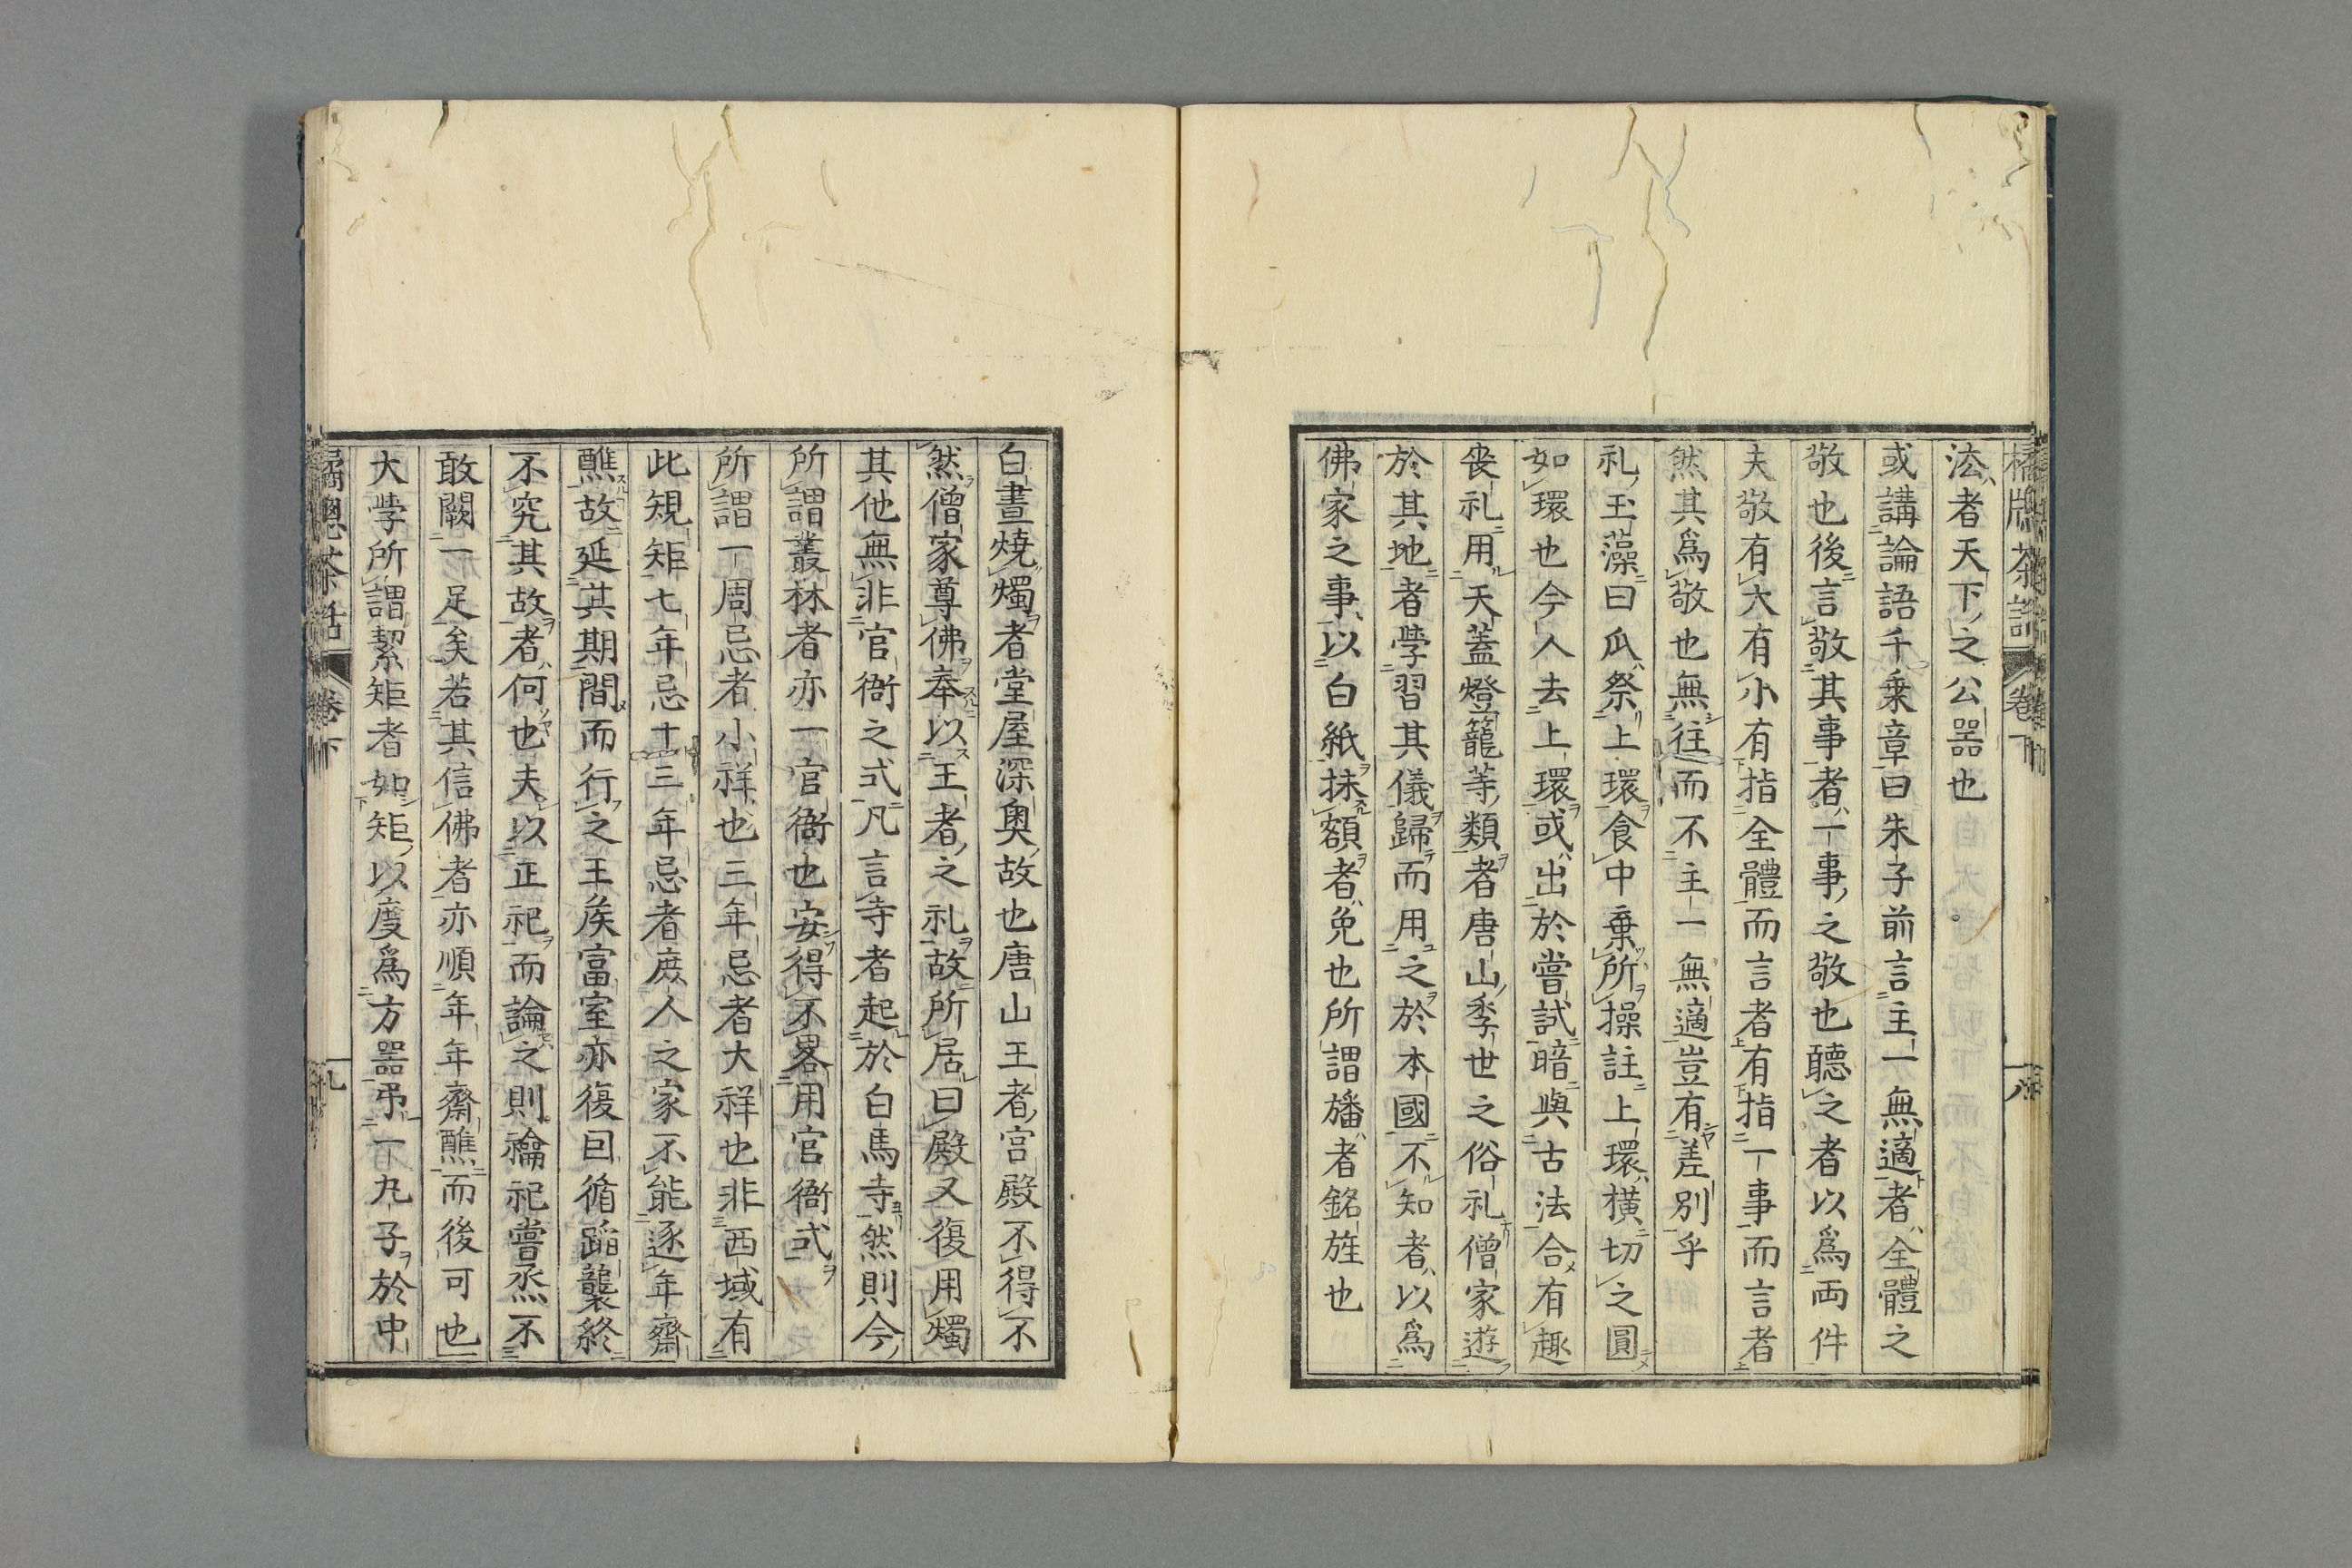 茶話 卷下 八
法者天下之公器也
或講論語千乗章曰朱子前言主一無適者全體之
敬也後言敬其事者一事之敬也聽之者以爲両件
夫敬有大有小有指全體而言者有指一事而言者
然其爲敬也無往而不主一無適豈有差別乎
礼玉藻曰瓜祭上環食中棄所操註上環横切之圓
如環也今人去上環或出於嘗試暗與古法合有趣
喪礼用天蓋燈籠等類者唐山季世之俗礼僧家遊
於其地者學習其儀歸而用之於本國不知者以爲
佛家之事以白紙抹額者免也所謂旛者銘旌也
白晝燒燭者堂屋深奧故也唐山王者宮殿不得不
然僧家尊佛奉以王者之礼故所居曰殿又復用燭
其他無非官衙之式凡言寺者起於白馬寺然則今
所謂叢林者亦一官衙也安得不畧用官衙式
所謂一周忌者小祥也三年忌者大祥也非西域有
此規矩七年忌十三年忌者庶人之家不能逐年齋
醮故延其期間而行之王矦富室亦復囙循蹈襲終
不究其故者何也夫以正祀而論之則禴祀嘗烝不
敢闕一足矣若其信佛者亦順年年齋醮而後可也
大學所謂絜矩者如矩以度爲方器弔下九子於中
窻茶話 卷下 九